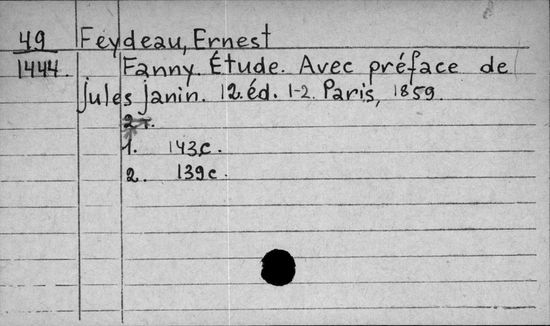 49 Feydeau, Ernest
1444. Fanny. Étude. Avec préface de
Jules Janin. 12. éd. 1-2. Paris, 1859.
1. 143c.
2. 139c.